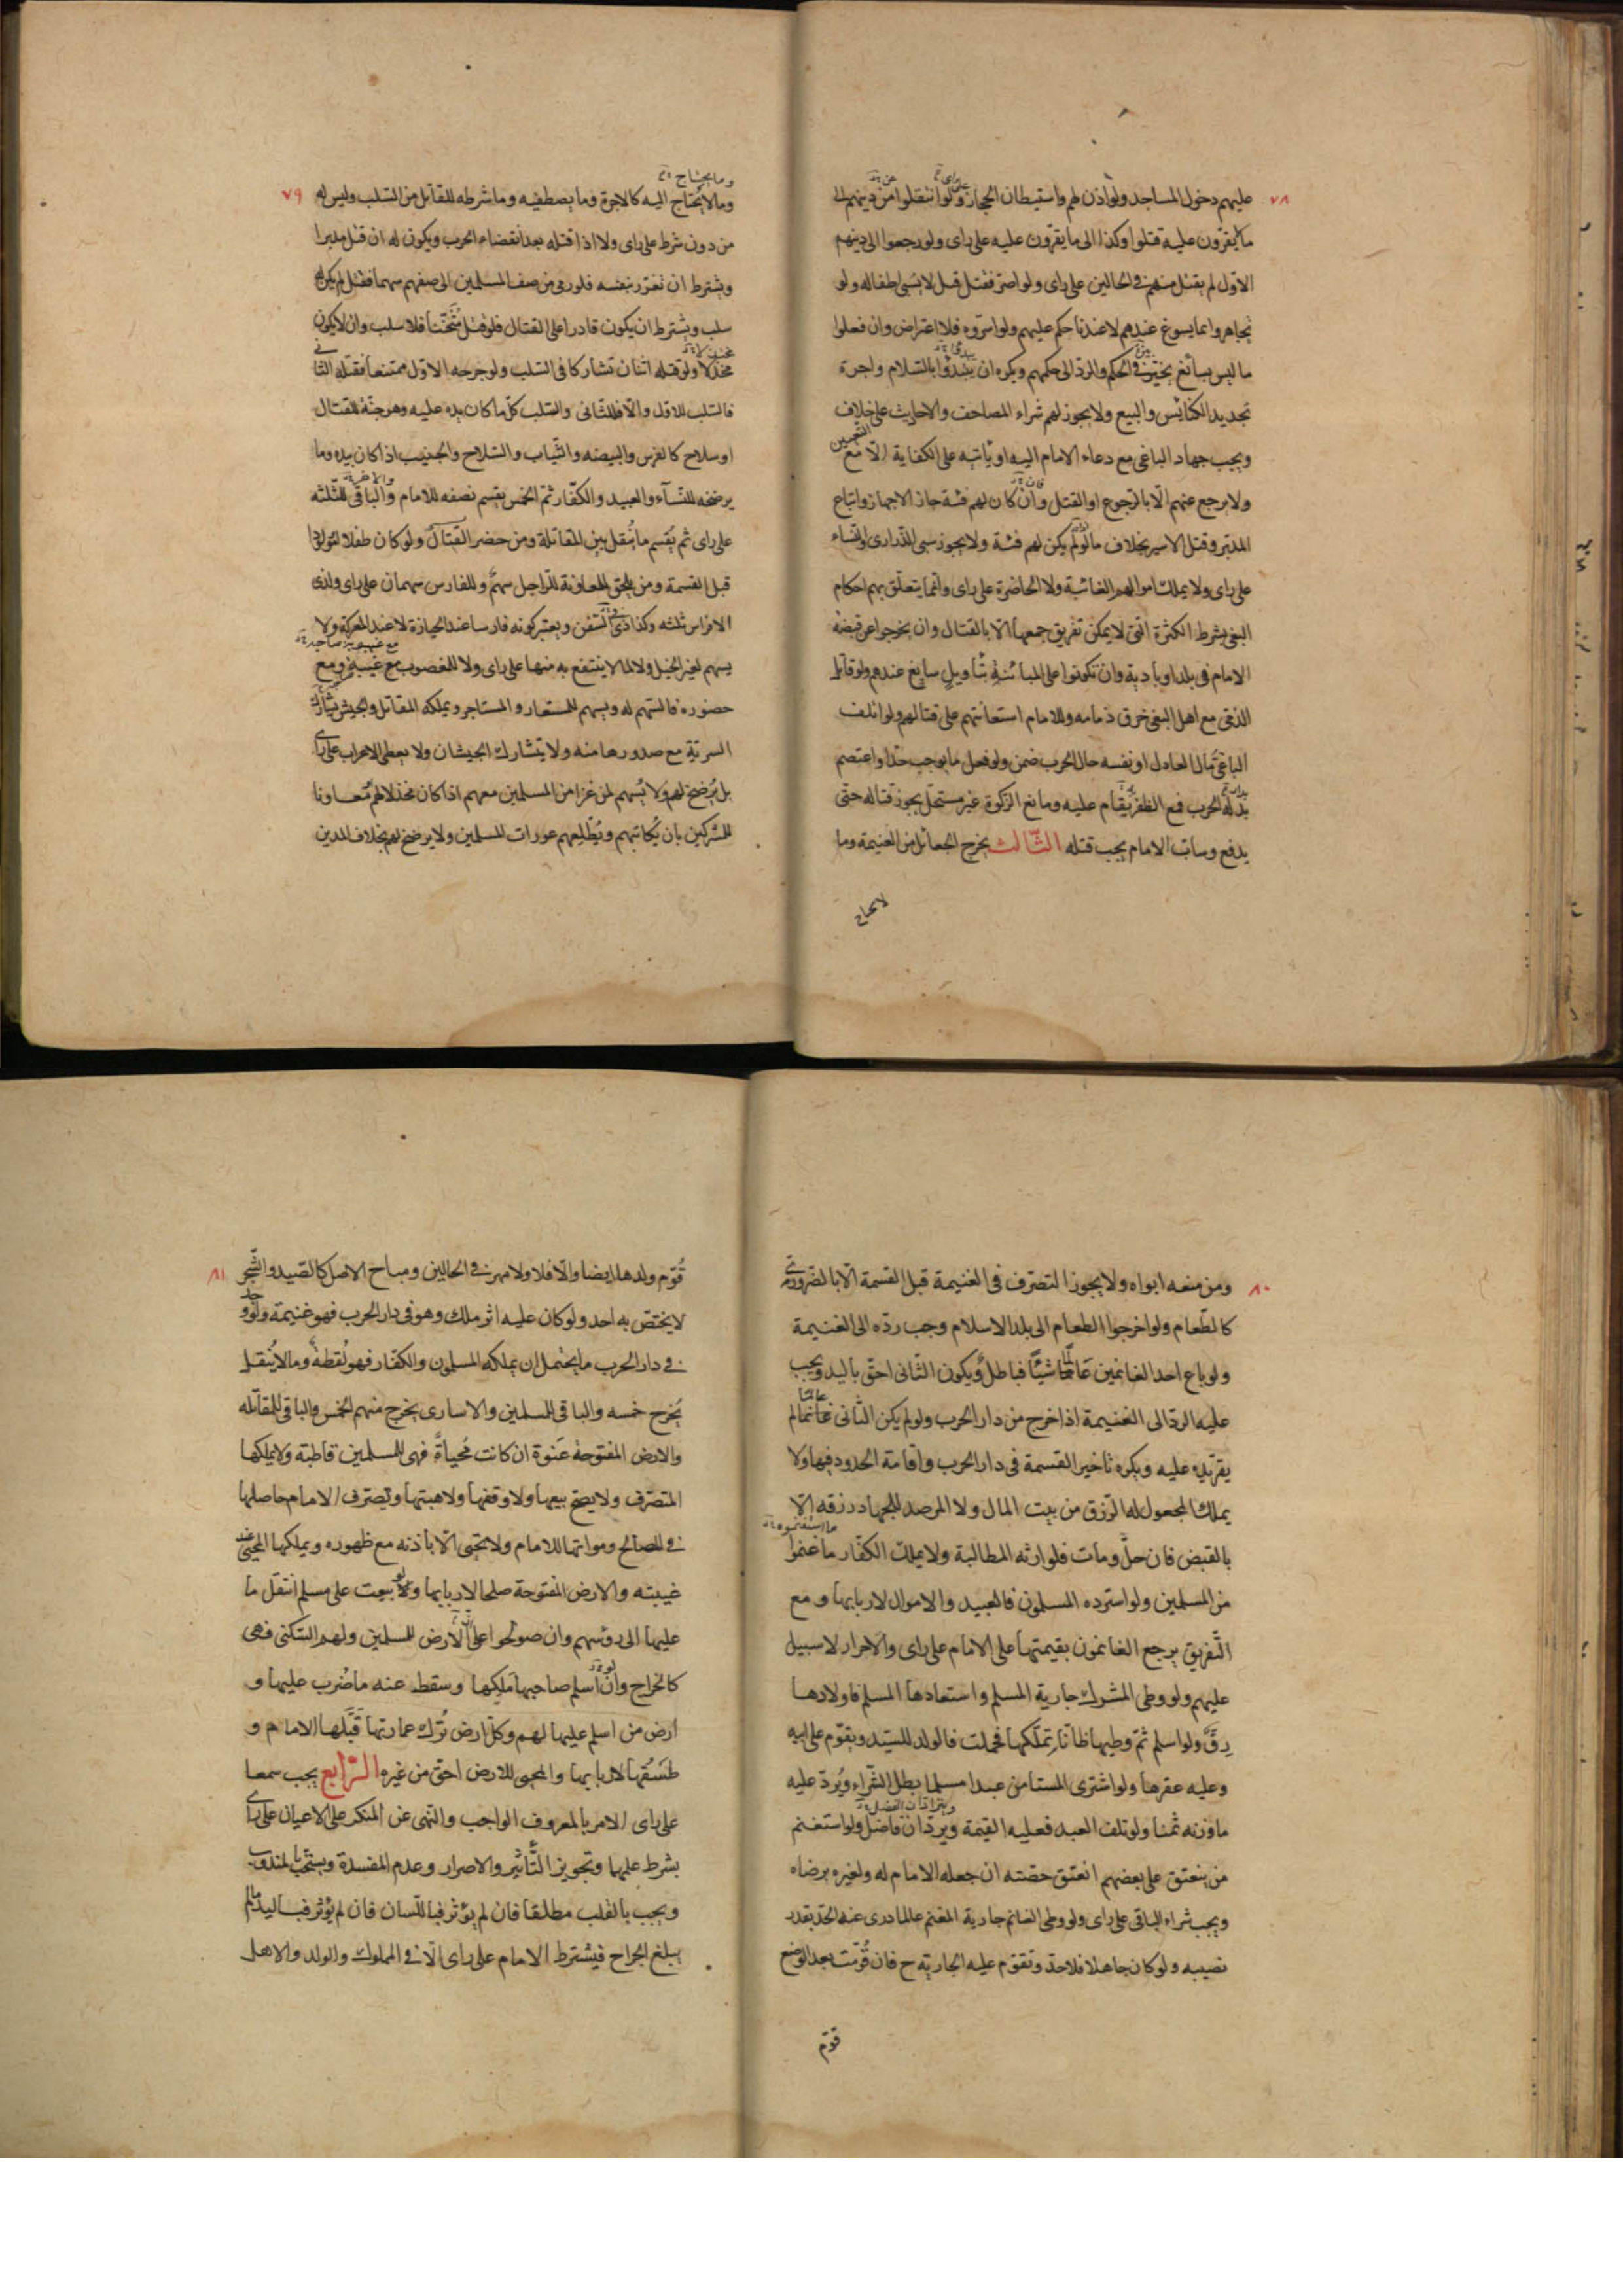 ٧٨
عليهم دخول المساجد ولو اذن لهم واستيطان الحجاز على راى ولو انتقلوا من دينهم الى
ما يقرّون عليه قتلوا وكذا الى ما يقرّون عليه على راى ولو رجعوا الى دينهم
الاوّل لم يقبل منهم فى الحالين على راى ولو اصرّ فقتل قيل لا يسبى اطفاله ولو
تجاهروا بما يسوغ عندهم لا عندنا حكم عليهم ولو اسرّوه فلا اعتراض وان فعلوا
ما ليس بسائغ يتخيّر فى الحكم والردّ الى حكمهم ويكره ان يبتدؤا بالسّلام واجرة
تجديد الكنايس والبيع ولا يجوز لهم شراء المصاحف والاحاديث على خلاف
ويجب جهاد الباغى مع دعاء الامام اليه او نائبه على الكفاية الّا مع التعيين
ولا يرجع عنهم الّا بالرّجوع او القتل وان كان لهم فئة جاز الاجهاز واتباع
المدبر وقتل الاسير بخلاف ما لو لم يكن لهم فئة ولا يجوز سبى الذّرارى والنساء
على راى ولا يملك اموالهم الغائبة ولا الحاضرة على راى وانّما يتعلّق بهم احكام
البغى بشرط الكثرة الّتى لا يمكن تفريق جمعها الّا بالقتال وان يخرجوا عن قبضة
الامام فى بلد او بادية وان تكونوا على المباينة بتأويل سايغ عندهم ولو قاتل
الذمّى مع اهل البغى خرق ذمامه وللامام استعانتهم على قتالهم ولو اتلف
الباغى مال العادل او نفسه حال الحرب ضمن ولو فعل ما يوجب حدّا واعتصم
بدار الحرب فمع الظفر يقام عليه ومانع الزكوة غير مستحلّ يجوز قتاله حتّى
يدفع وسابّ الامام يجب قتله الثّالث يخرج الجعائل من الغنيمة وما
لا يحتاج
٧٩
وما يحتاج
وما لا يحتاج اليه كالاجرة وما يصطفيه وما شرطه للقاتل من السّلب وليس له
من دون شرط على راى ولا اذا قتله بعد انقضاء الحرب ويكون له ان قتل مدبرا
ويشترط ان تغرّر بنفسه فلو رمى من صف المسلمين الى صفهم سهما فقتل لم يكن له
سلب ويشترط ان يكون قادرا على القتال فلو قتل مثخنا فلا سلب وان لا يكون
مخذلا ولو قتله اثنان تشاركا فى السّلب ولو جرحه الاوّل ممتنعا فقتله الثانى
فالسّلب للاوّل والّا فللثانى والسّلب كلّ ما كان يده عليه وهو جنّة للقتال
او سلاح كالفرس والبيضه والثّياب والسّلاح والجنيب اذا كان بيده وما
يرضخه للنّساء والعبيد والكفّار ثمّ الخمس يقسم نصفه للامام والباقى للثّلثه
على راى ثم يقسم ما ينقل بين المقاتلة ومن حضر القتال ولو كان طفلا لتولّد
قبل القسمة ومن يلحق للمعاونة للرّاجل سهم وللفارس سهمان على راى ولذى
الافراس ثلثه وكذا ذى السّفن ويعتبر كونه فارسا عند الحيازة لا عند المعركة ولا
يسهم لغير الخيل ولا لما لا ينتفع به منها على راى ولا للغصوب مع غيبته ومع
حضوره فالسّهم له ويسهم للمستعار والمستاجر ويملكه المقاتل والجيش يشارك
السريّة مع صدورها منه ولا يتشارك الجيشان ولا يعطى الاعراب على راى
بل يرضخ لهم ولا يسهم لمن غزا من المسلمين معهم اذا كان مخذلا لهم معاونا
للمشركين بان يكاتبهم ويطلعهم عورات المسلمين ولا يرضخ لهم بخلاف المدين
٨٠
ومن منعه ابواه ولا يجوز التصرّف فى الغنيمة قبل القسمة الّا بالضّرورى
كالطّعام ولو اخرجوا الطعام الى بلد الاسلام وجب ردّه الى الغنيمة
ولو باع احد الغانمين غانما شيئا فباطل ويكون الثّانى احقّ باليد ويجب
عليه الردّ الى الغنيمة اذا خرج من دار الحرب ولو لم يكن الثّانى غانما لم
يقرّ يده عليه ويكره تاخير القسمة فى دار الحرب واقامة الحدود فيها ولا
يملك المجعول له الرّزق من بيت المال ولا المرصد للجهاد رزقه الّا
بالقبض فان حلّ ومات فلوارثه المطالبة ولا يملك الكفّار ما غنموا
من المسلمين ولو استرده المسلمون فالعبيد والاموال لاربابها ومع
التّفريق يرجع الغانمون بقيمتها على الامام على راى والاحرار لا سبيل
عليهم ولو وطى المشرك جارية المسلم واستعادها المسلم فاولادها
رقّ ولو اسلم ثمّ وطيها ظانّا تملّكها فحملت فالولد للسيّد ويقوّم على ابيه
وعليه عقرها ولو اشترى المستامن عبدا مسلما بطل الشّراء ويردّ عليه
ما وزنه ثمنا ولو تلف العبد فعليه القيمة ويردّان فاضل ولو استغنم
من ينعتق على بعضهم انعتق حصّته ان جعله الامام له ولغيره برضاه
ويجب شراء الباقى على راى ولو وطى الغانم جارية المغنم عالما درى عنه الحدّ بقدر
نصيبه ولو كان جاهلا فلا حدّ وتقوّم عليه الجارية ح فان قوّمت بعد الوضع
قوّم
٨١
قوّم ولدها ايضا والّا فلا ولا مهر فى الحالين ومباح الاصل كالصّيد والشّجر
لا يختصّ به احد ولو كان عليه اثر ملك وهو فى دار الحرب فهو غنيمة ولو وجد
فى دار الحرب ما يحتمل ان يملكه المسلمون والكفّار فهو لقطة وما لا ينقل
يخرج خمسه والباقى للمسلمين والاسارى يخرج منهم الخمس والباقى للمقاتله
والارض المفتوحة عنوة ان كانت محياة فهى للمسلمين قاطبة ولا يملكها
المتصرّف ولا يصحّ بيعها ولا وقفها ولا هبتها ويصرف الامام حاصلها
فى المصالح ومواتها للامام ولا يحيى الّا باذنه مع ظهوره ويملكها المحيى عند
غيبته والارض المفتوحة صلحا لاربابها ولو بيعت على مسلم انتقل ما
عليها الى رؤسهم وان صولحوا على انّ الارض للمسلمين ولهم السّكنى فهى
كالخراج وان اسلم صاحبها ملكها وسقط عنه ما ضرب عليها و
ارض من اسلم عليها لهم وكلّ ارض ترك عمارتها قبّلها الامام و
طسقها لاربابها والمحيى للارض احقّ من غيره الرّابع يجب سمعا
على راى الامر بالمعروف الواجب والنّهى عن المنكر على الاعيان على راى
بشرط علمها وتجويز التّأثير والاصرار وعدم المفسدة ويستحبّ بالمندوب
ويجب بالقلب مطلقا فان لم يؤثر فباللّسان فان لم يؤثر فباليد ما لم
يبلغ الجراح فيشترط الامام على راى الّا فى المملوك والولد والاهل